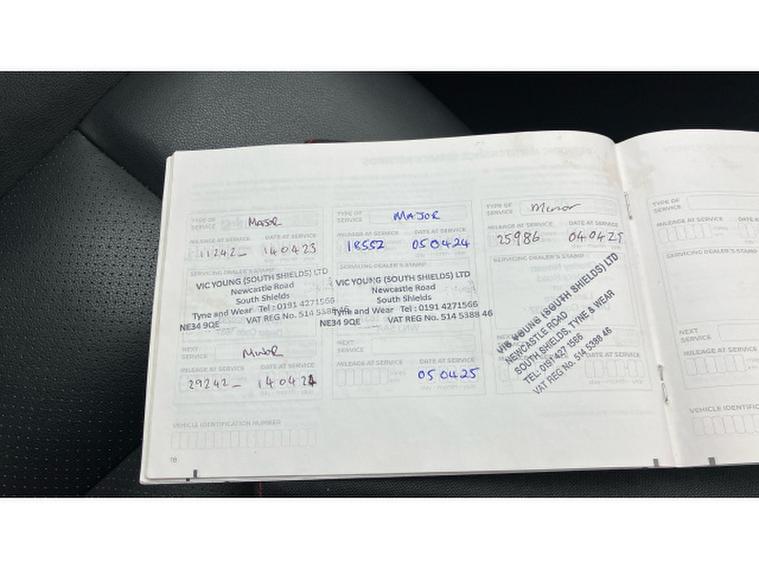 TYPE OF SERVICE Major
MILEAGE AT SERVICE DATE AT SERVICE
11242 14 04 23
SERVICING DEALER'S STAMP
VIC YOUNG (SOUTH SHIELDS) LTD
Newcastle Road
South Shields
Tyne and Wear Tel : 0191 4271566
NE34 9QE VAT REG No. 514 5388 46
NEXT SERVICE Minor
MILEAGE AT SERVICE DATE AT SERVICE
29242 14 04 24
VEHICLE IDENTIFICATION NUMBER
TYPE OF SERVICE MAJOR
MILEAGE AT SERVICE DATE AT SERVICE
18552 05 04 24
SERVICING DEALER'S STAMP
VIC YOUNG (SOUTH SHIELDS) LTD
Newcastle Road
South Shields
Tyne and Wear Tel : 0191 4271566
NE34 9QE VAT REG No. 514 5388 46
NEXT SERVICE
MILEAGE AT SERVICE DATE AT SERVICE
05 04 25
TYPE OF SERVICE Minor
MILEAGE AT SERVICE DATE AT SERVICE
25986 04 04 25
SERVICING DEALER'S STAMP
VIC YOUNG (SOUTH SHIELDS) LTD
NEWCASTLE ROAD
SOUTH SHIELDS, TYNE & WEAR
TEL: 0191 427 1566
VAT REG No. 514 5388 46
TYPE OF SERVICE
MILEAGE AT SERVICE
SERVICING DEALER'S STAMP
NEXT SERVICE
MILEAGE AT SERVICE